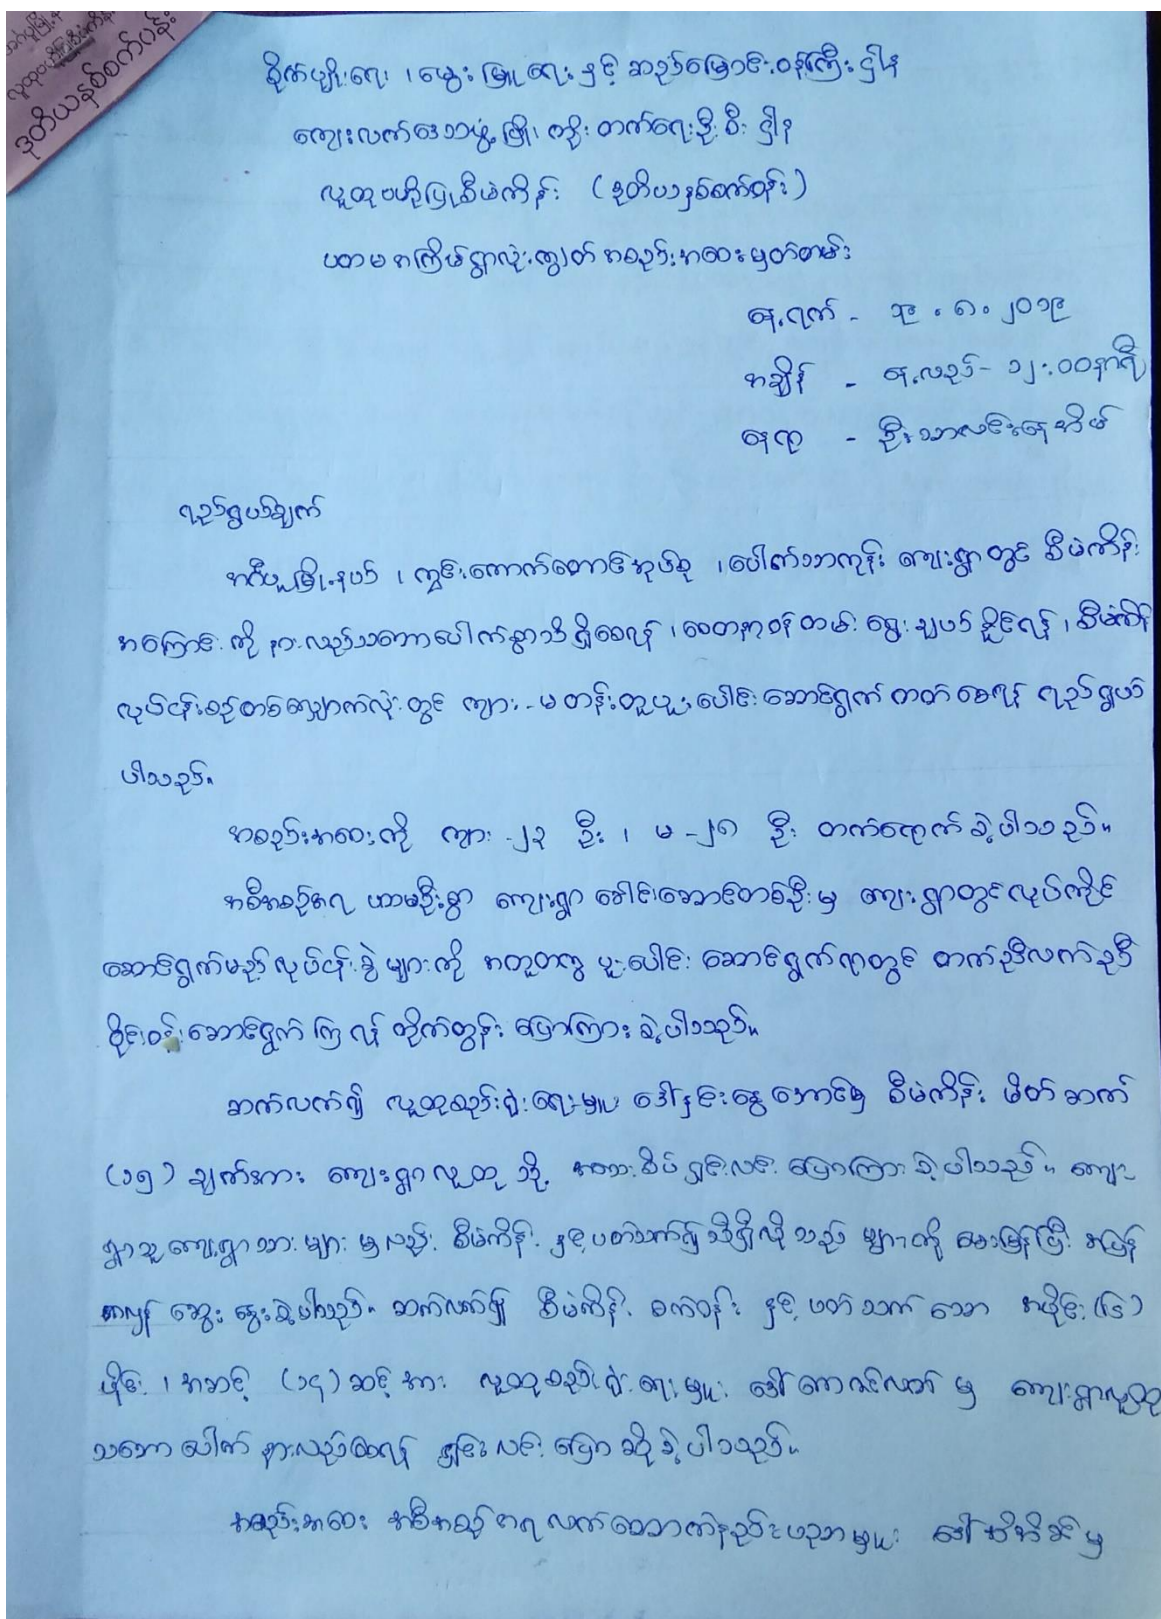 ဒုတိယနှစ်စက်ဝန်း
စိုက်ပျိုးရေး ၊ မွေးမြူရေးနှင့် ဆည်မြောင်းဝန်ကြီးဌါန
ကျေးလက်ဒေသဖွံ့ဖြိုးတိုးတက်ရေးဦးစီးဌါန
လူထုဗဟိုပြုစီမံကိန်း (ဒုတိယနှစ်စက်ဝန်း)
ပထမအကြိမ်ရွာလုံးကျွတ် အစည်းအဝေးမှတ်တမ်း
နေ့ရက် -
အချိန် - နေ့လည် - ၁၂:၀၀နာရီ
နေရာ - ဦးသာလင်းနေအိမ်
ရည်ရွယ်ချက်
အင်္ဂပူမြို့နယ် ၊ ကျေးရွာတွင် စီမံကိန်း
အကြောင်းကို နားလည်သဘောပေါက်စွာသိရှိစေရန် ၊ စေတနာ့ဝန်ထမ်း ရွေးချယ်နိုင်ရန် ၊ စီမံကိန်း
လုပ်ငန်းစဉ်တစ်လျှောက်လုံးတွင် ကျား - မ တန်းတူပူးပေါင်းဆောင်ရွက်တတ်စေရန် ရည်ရွယ်
ပါသည်။
အစည်းအဝေးကို ကျား -၂၃ ဦး ၊ မ -၂၈ ဦး တက်ရောက်ခဲ့ပါသည်။
အစီအစဉ်အရ ပထမဦးစွာ ကျေးရွာခေါင်းဆောင်တစ်ဦးမှ ကျေးရွာတွင်လုပ်ကိုင်
ဆောင်ရွက်မည့် လုပ်ငန်းခွဲများကို အတူတကွ ပူးပေါင်း ဆောင်ရွက်ရာတွင် တက်ညီလက်ညီ
ဝိုင်းဝန်းဆောင်ရွက်ကြရန် တိုက်တွန်း ပြောကြားခဲ့ပါသည်။
ဆက်လက်၍ လူထုစည်းရုံးရေးမှူး ဒေါ်နှင်းနွေအောင်မှ စီမံကိန်း မိတ်ဆက်
(၁၅) ချက်အား ကျေးရွာလူထုသို့ အသေးစိပ်ရှင်းလင်း ပြောကြားခဲ့ပါသည်။ ကျေး
ရွာသူကျေးရွာသားများမှလည်း စီမံကိန်းနှင့်ပတ်သက်၍သိရှိလိုသည်များကို မေးမြန်းပြီး အပြန်
အလှန် ဆွေးနွေးခဲ့ပါသည်။ ဆက်လက်၍ စီမံကိန်းစက်ဝန်းနှင့်ပတ်သက်သော အပိုင်း (၆)
ပိုင်း ၊ အဆင့် (၁၄) ဆင့်အား လူထုစည်းရုံးရေးမှူး ဒေါ် မှ ကျေးရွာလူထု
သဘောပေါက်နားလည်စေရန် ရှင်းလင်းပြောဆိုခဲ့ပါသည်။
အစည်းအဝေး အစီအစဉ်အရ လက်ထောက်နည်းပညာမှူး ဒေါ်အိအိခင်မှ